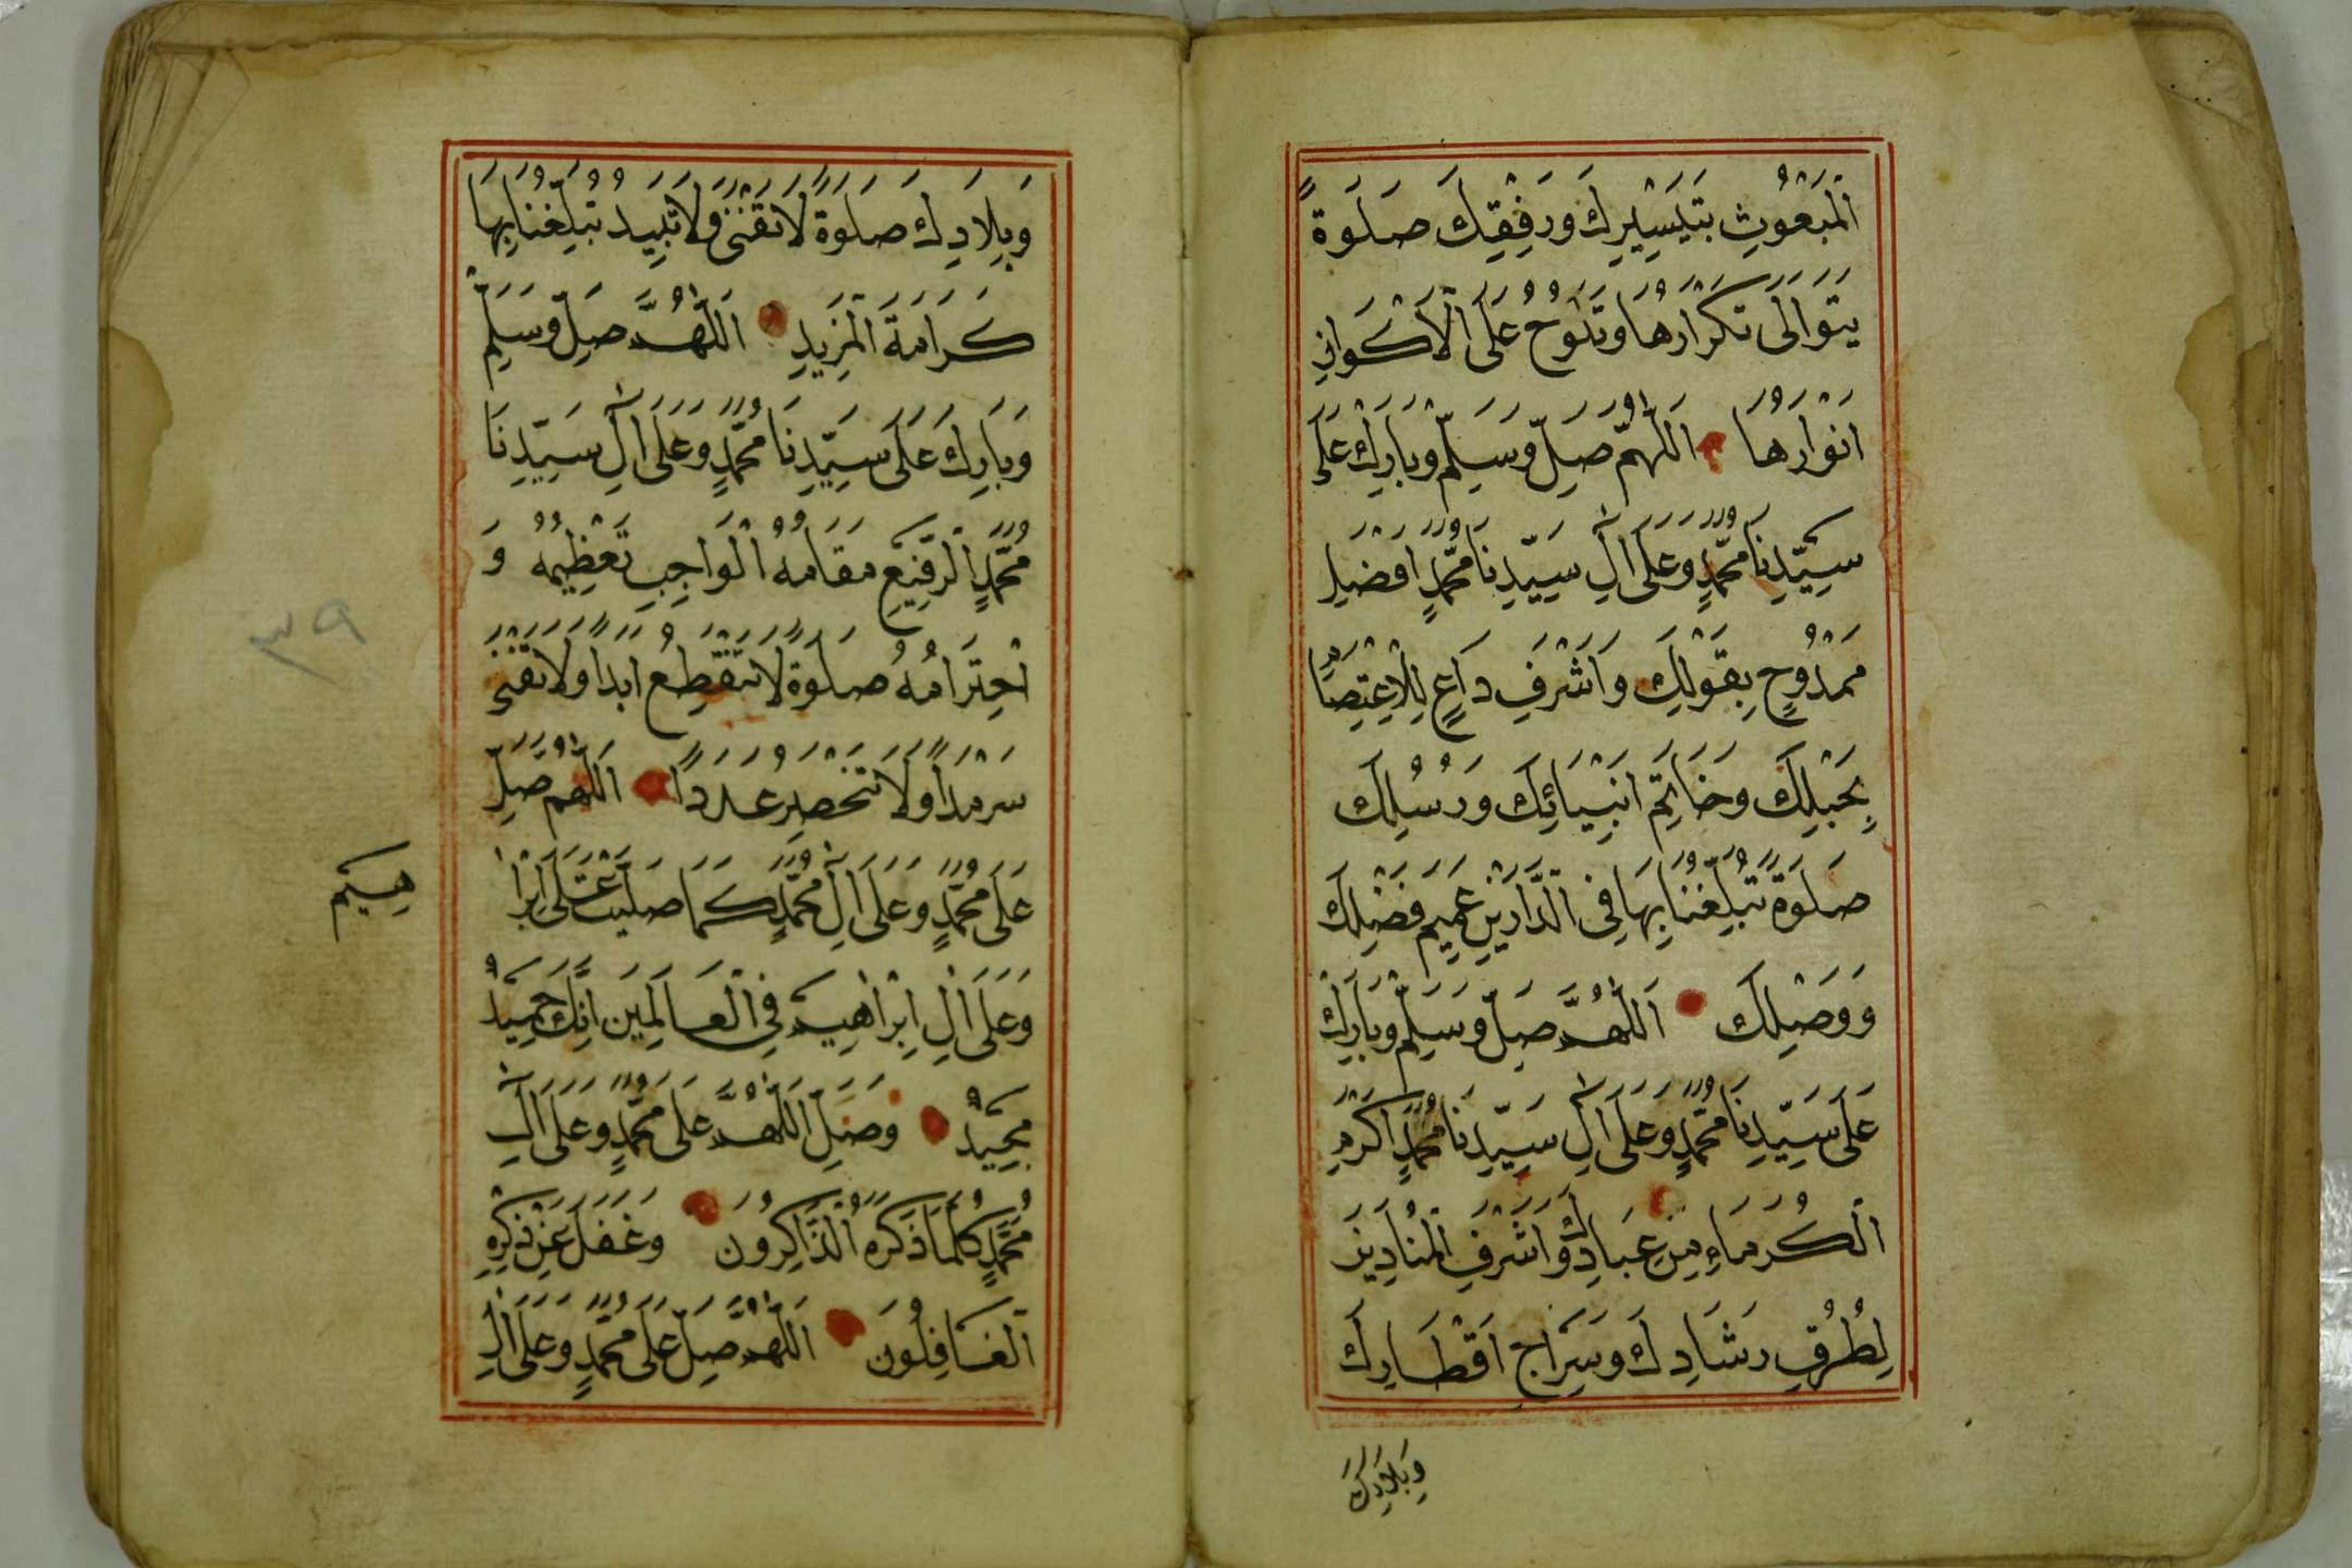 الْمَبْعُوثِ بِتَيْسِيرِكَ وَرِفْقِكَ صَلَوةً
يَتَوَالَى تَكْرَارُهَا وَتَلُوحُ عَلَى الْاَكْوَانِ
اَنْوَارُهَا اَللّٰهُمَّ صَلِّ وَسَلِّمْ وَبَارِكْ عَلَى
سَيِّدِنَا مُحَمَّدٍ وَعَلَى اٰلِ سَيِّدِنَا مُحَمَّدٍ اَفْضَلِ
مَمْدُوحٍ بِقَوْلِكَ وَاَشْرَفِ دَاعٍ لِلْاِعْتِصَامِ
بِحَبْلِكَ وَخَاتَمِ اَنْبِيَائِكَ وَرُسُلِكَ
صَلَوةً تُبَلِّغُنَا بِهَا فِي الدَّارَيْنِ عَمِيمَ فَضْلِكَ
وَوَصْلِكَ اَللّٰهُمَّ صَلِّ وَسَلِّمْ وَبَارِكْ
عَلَى سَيِّدِنَا مُحَمَّدٍ وَعَلَى اٰلِ سَيِّدِنَا مُحَمَّدٍ اَكْرَمِ
الْكُرَمَاءِ مِنْ عِبَادِكَ وَاَشْرَفِ الْمُنَادِينَ
لِطُرُقِ رَشَادِكَ وَسِرَاجِ اَقْطَارِكَ
وَبِلَادِكَ
وَبِلَادِكَ صَلَوةً لَا تَفْنَى وَلَا تَبِيدُ تُبَلِّغُنَا بِهَا
كَرَامَةَ الْمَزِيدِ اَللّٰهُمَّ صَلِّ وَسَلِّمْ
وَبَارِكْ عَلَى سَيِّدِنَا مُحَمَّدٍ وَعَلَى اٰلِ سَيِّدِنَا
مُحَمَّدٍ الرَّفِيعِ مَقَامُهُ الْوَاجِبِ تَعْظِيمُهُ وَ
احْتِرَامُهُ صَلَوةً لَا تَنْقَطِعُ اَبَدًا وَلَا تَفْنَى
سَرْمَدًا وَلَا تَنْحَصِرُ عَدَدًا اَللّٰهُمَّ صَلِّ
عَلَى مُحَمَّدٍ وَعَلَى اٰلِ مُحَمَّدٍ كَمَا صَلَّيْتَ عَلَى اِبْرَا
هيم
وَعَلَى اٰلِ اِبْرَاهِيمَ فِي الْعَالَمِينَ اِنَّكَ حَمِيدٌ
مَجِيدٌ وَصَلِّ اَللّٰهُمَّ عَلَى مُحَمَّدٍ وَعَلَى اٰلِ
مُحَمَّدٍ كُلَّمَا ذَكَرَهُ الذَّاكِرُونَ وَغَفَلَ عَنْ ذِكْرِهِ
الْغَافِلُونَ اَللّٰهُمَّ صَلِّ عَلَى مُحَمَّدٍ وَعَلَى اٰلِ
٣٩